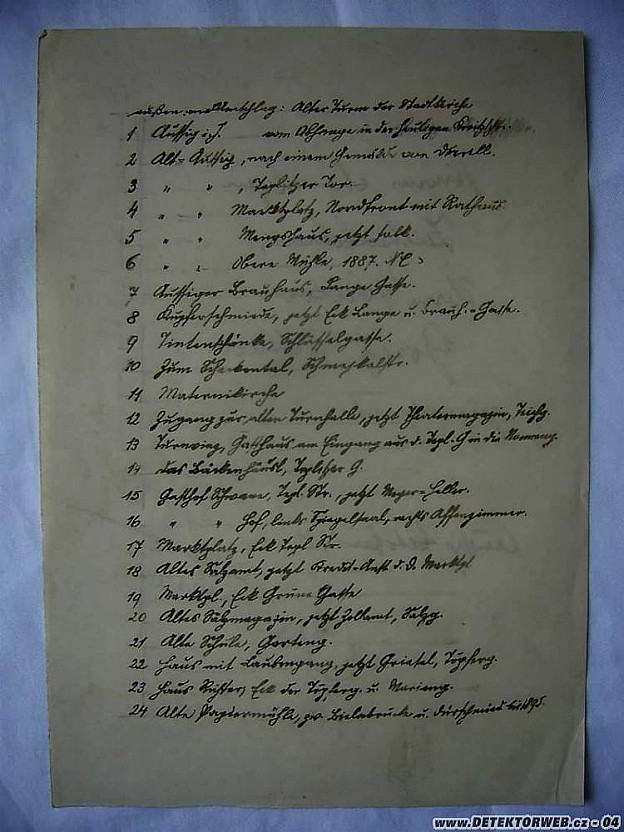 außen am Umschlag: Alter Turm der Stadtkirche
1 Aussig i. J. vom Abhange in der heutigen
2 Alt-Aussig, nach einem Gemälde von
3 " " , Teplitzer Tor.
4 " " Marktplatz, Nordfront mit Rathaus.
5 " " jetzt
6 " " Obere Mühle, 1887.
7 Aussiger Brauhaus, Lange Gasse.
8 Kupferschmiede, jetzt Eck Lange u. Brauh.-Gasse.
9 Tintenschänke, Schlüsselgasse.
10 Zum Schmeykalstr.
11 Maternikirche
12 Zugang zur alten Turnhalle, jetzt Theatermagazin, Teichg.
13 Gasthaus am Eingang aus d. Tepl. G in die
14 Das Bäckenhäusl, Teplitzer G.
15 Gasthof Schwane, Tepl. Str., jetzt
16 " " Hof, links Spiegelsaal, rechts Affenzimmer.
17 Marktplatz, Eck Tepl Str.
18 Altes Salzamt, jetzt Kredit-Anst d. D. Marktpl
19 Marktpl., Eck Grüne Gasse
20 Altes Salzmagazin, jetzt Zollamt, Salzg.
21 Alte Schule, Garteng.
22 Haus mit Laubengang, jetzt Töpferg.
23 Haus Richter, Eck der Töpferg. u. Marieng.
24 Alte Papiermühle, zw. Bielabrücke u. bis 1895.
www.DETEKTORWEB.cz - 04